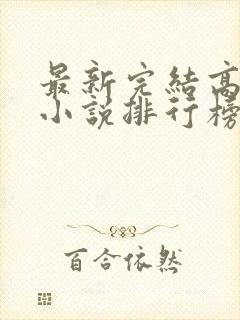 最新完結高
小說排行榜
百合依然